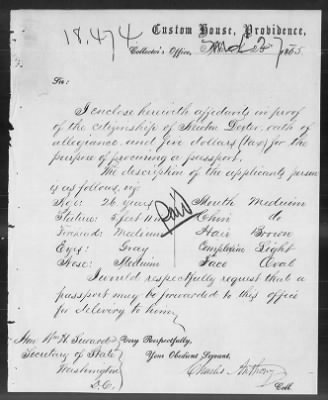 18,474
Custom House, Providence,
Collector's Office, March 27 1865.
Sir:
I enclose herewith affidavits in proof
of the citizenship of Newton Dexter, oath of
allegiance, and five dollars (tax) for the
purpose of procuring a passport.
The description of the applicant's person
is as follows, viz:
Age: 26 years Mouth Medium
Stature: 5 feet 11 in Chin do
Forehead: Medium Hair Brown
Eyes: Gray Complexion Light
Nose: Medium Face Oval
Paid
I would respectfully request that a
passport may be forwarded to this office
for delivery to him.
Hon. Wm H. Seward Very Respectfully,
Secretary of State Your Obedient Servant,
Washington Charles Anthony
D.C. Coll.